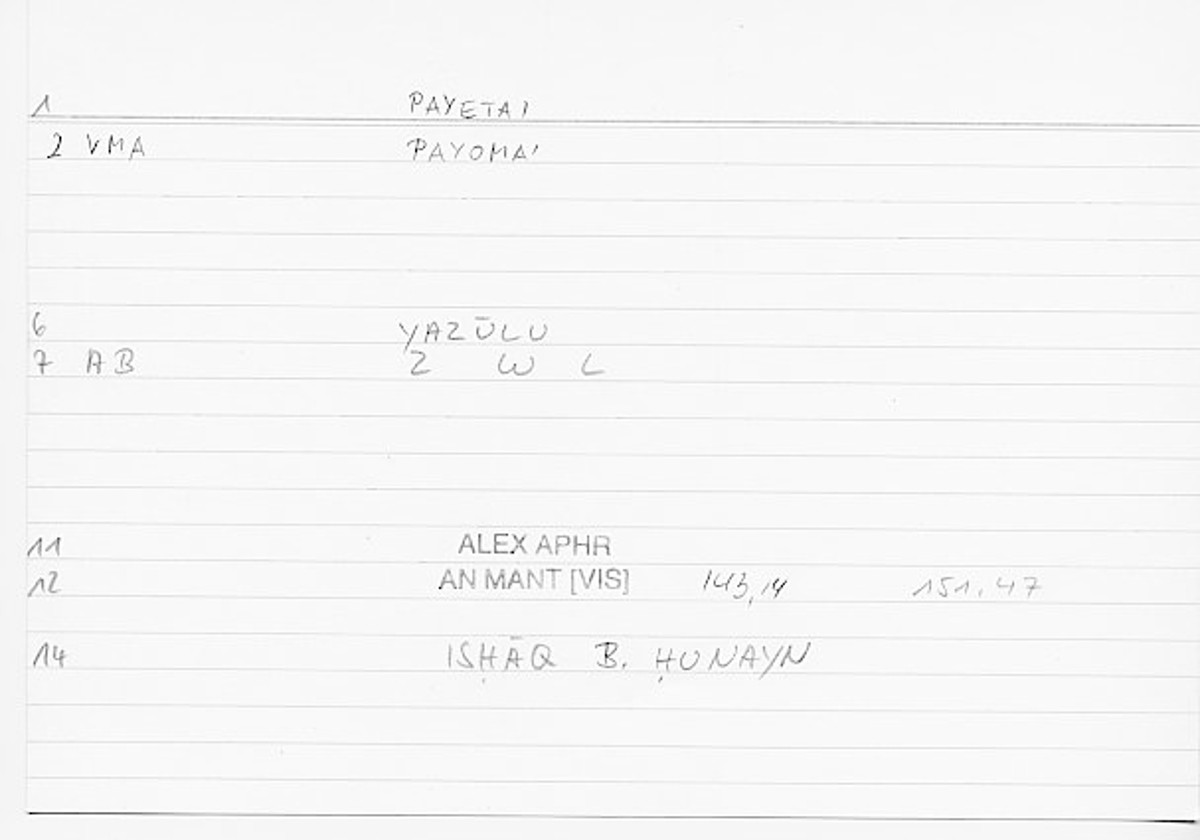 1 PAYETAI
2 VMA PAYOMAI
6 YAZŪLU
7 AB Z W L
11 ALEX APHR
12 AN MANT [VIS] 143,14 151.47
14 ISḤĀQ B. ḤUNAYN